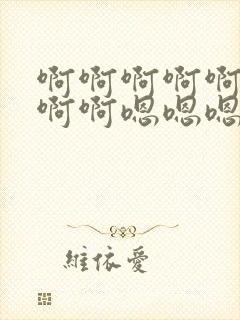 啊啊啊啊啊
啊啊嗯嗯嗯
維依愛